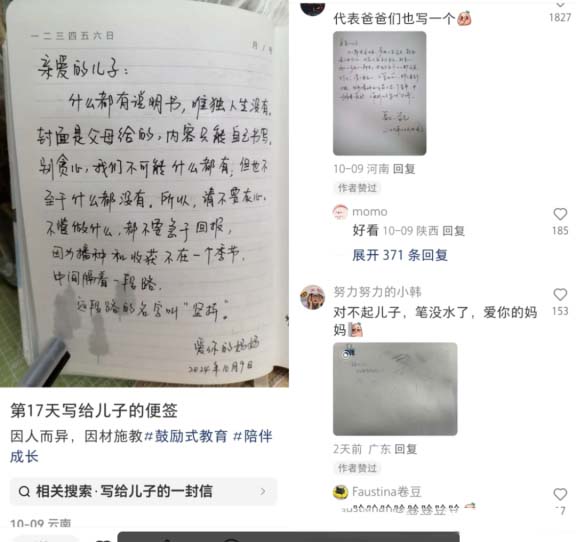 一二三四五六日
月/
亲爱的儿子：
什么都有说明书，唯独人生没有，
封面是父母给的，内容只能自己书写，
别贪心，我们不可能什么都有，但也不
至于什么都没有。所以，请不要灰心。
不管做什么，都不要急于回报，
因为播种和收获不在一个季节，
中间隔着一段路，
这段路的名字叫“坚持”。
爱你的妈妈
2024年10月9日
第17天写给儿子的便签
因人而异，因材施教#鼓励式教育 #陪伴
成长
相关搜索·写给儿子的一封信
10-09 云南
代表爸爸们也写一个
1827
10-09 河南 回复
作者赞过
momo
好看 10-09 陕西 回复
185
展开 371 条回复
努力努力的小韩
对不起儿子，笔没水了，爱你的妈
妈
153
2天前 广东 回复
作者赞过
Faustina卷豆